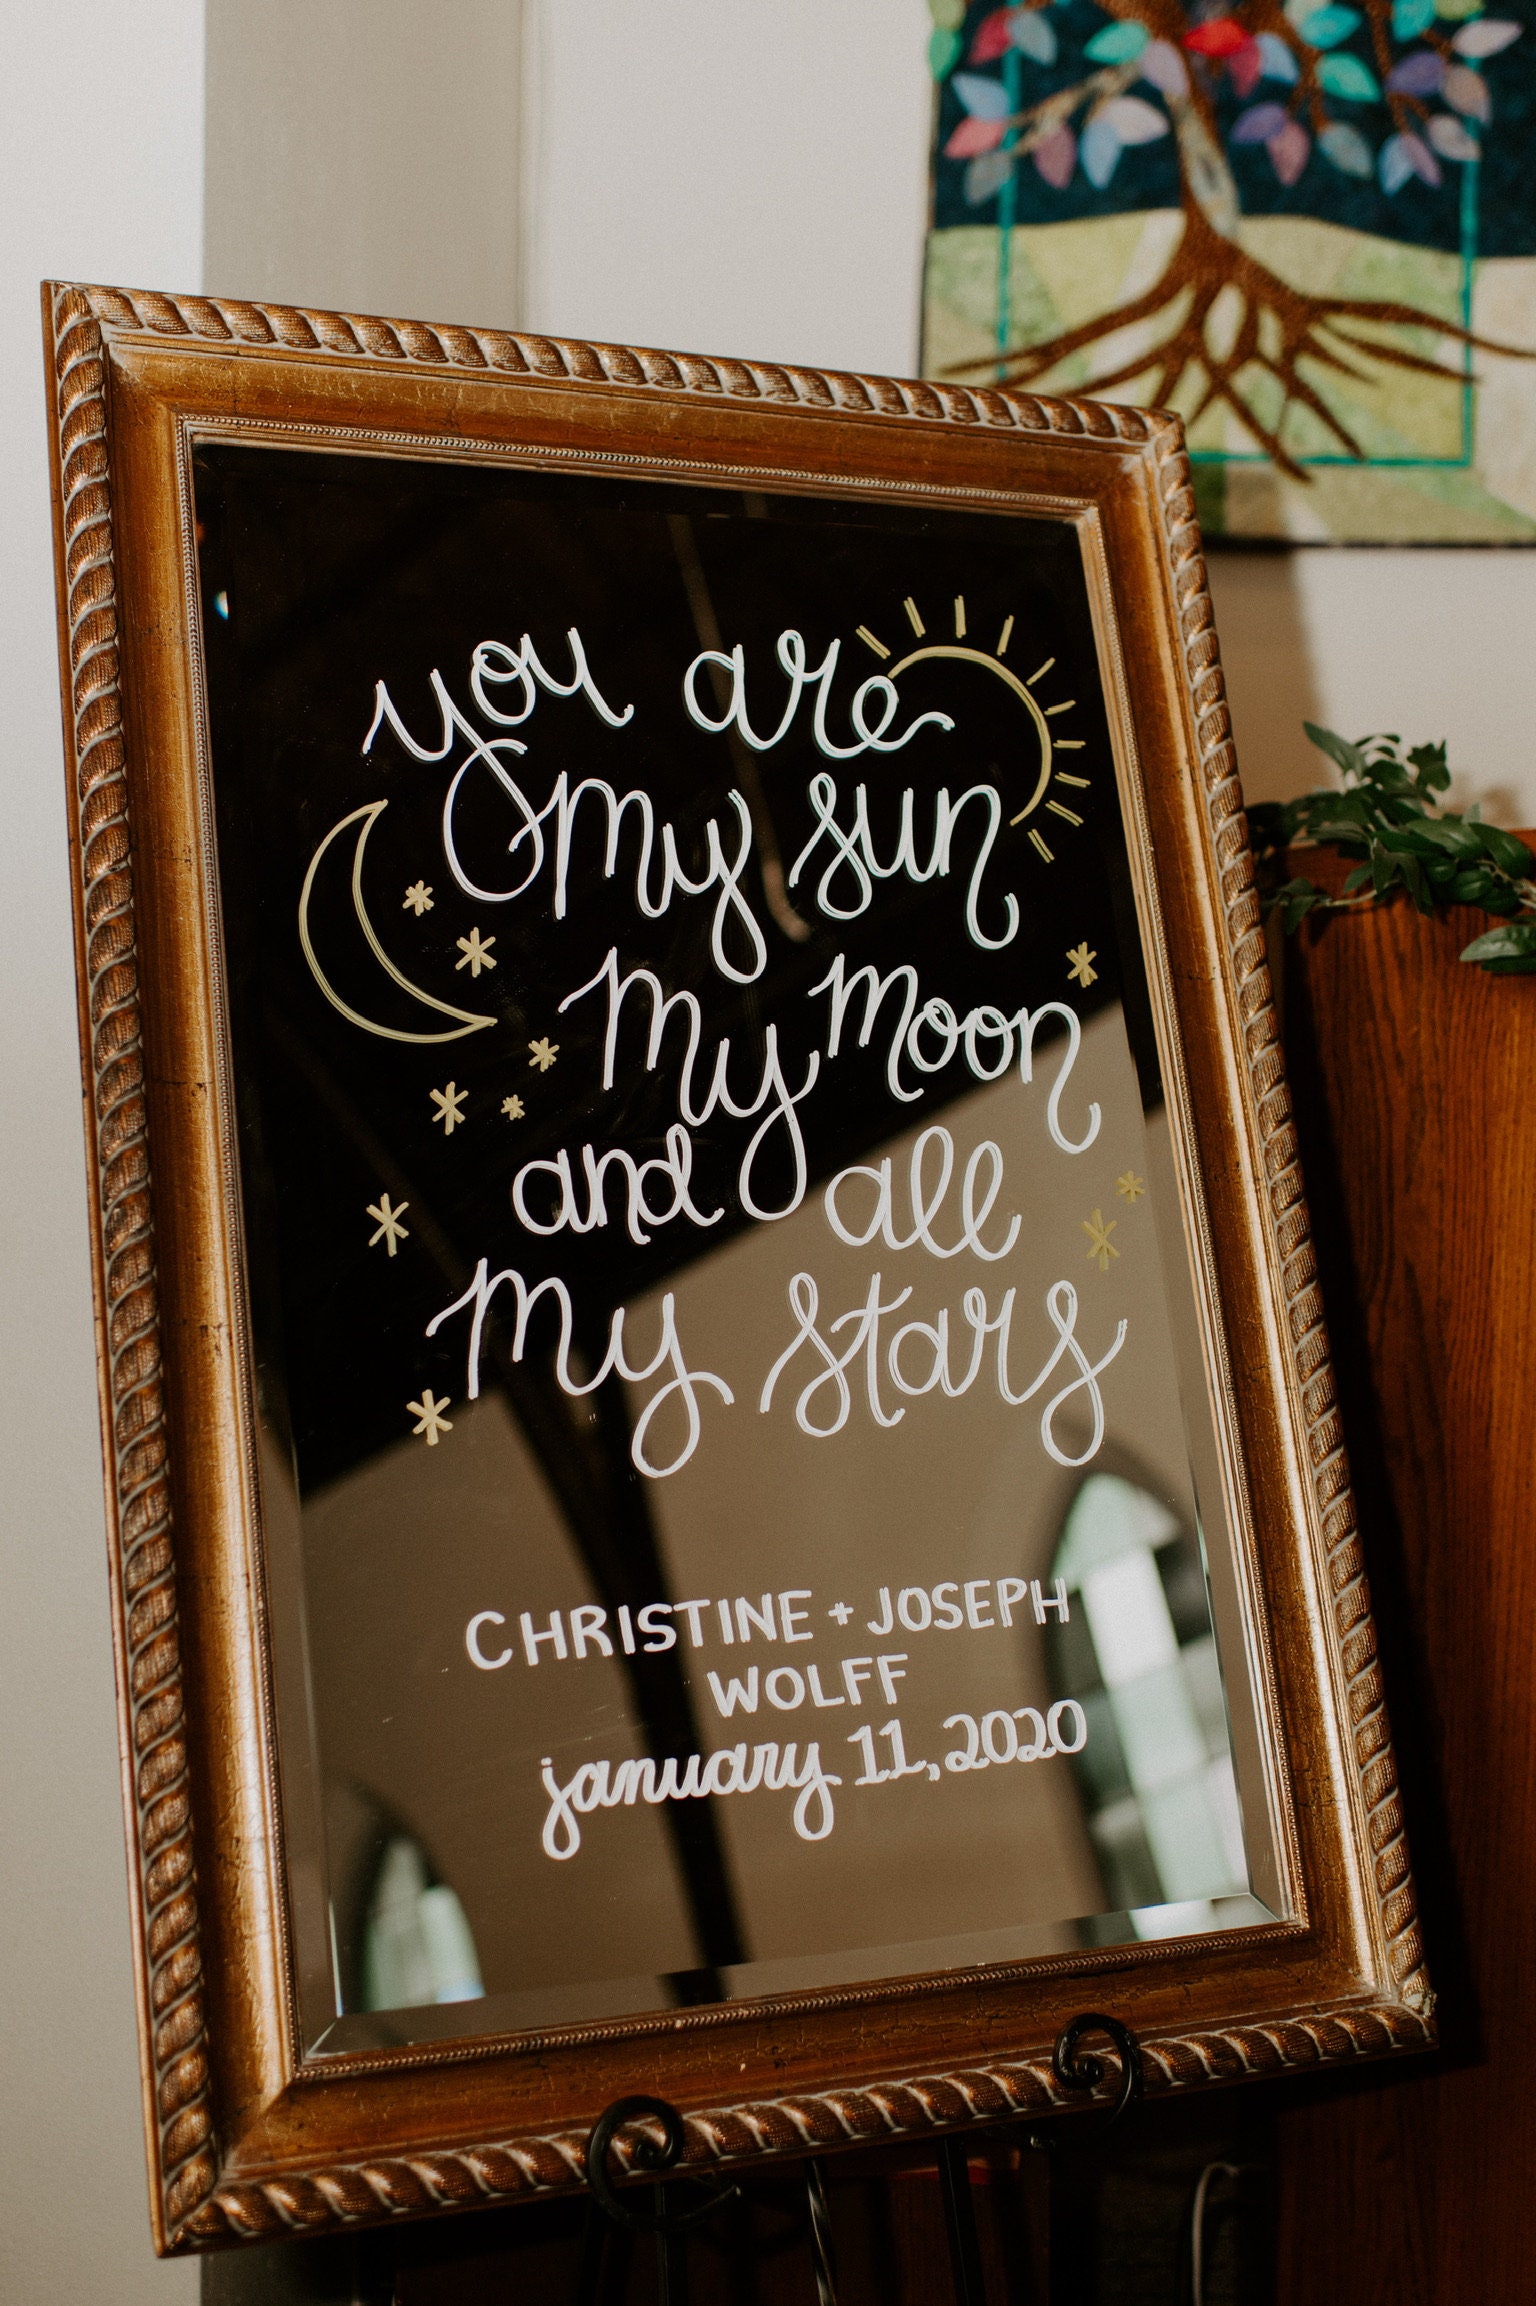 you are
my sun
my moon
and all
my stars
CHRISTINE + JOSEPH
WOLFF
january 11, 2020